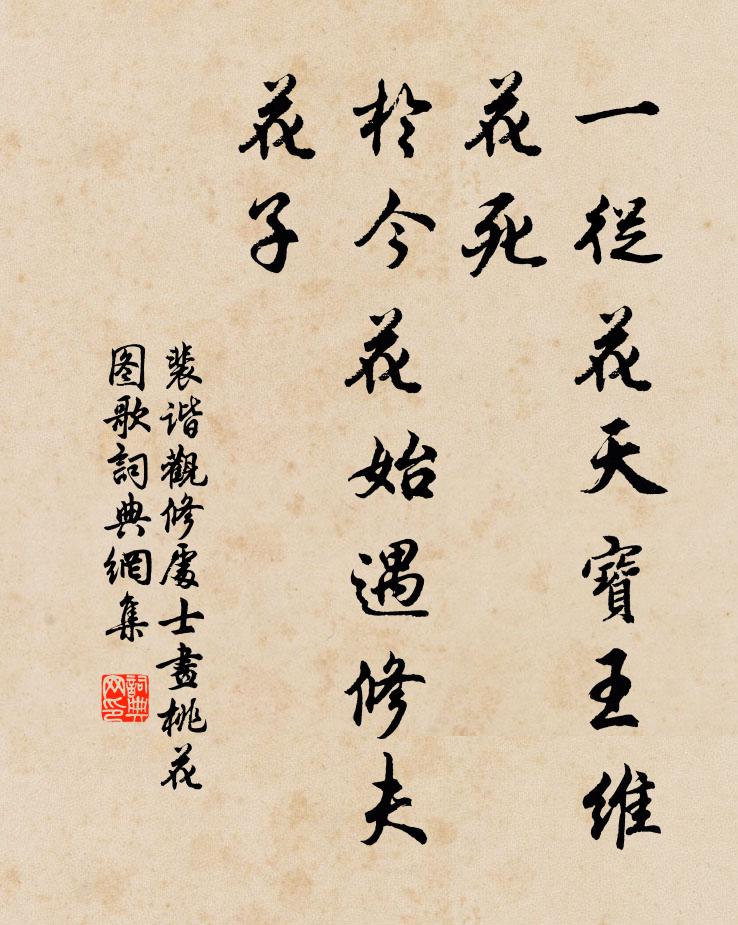 一從花天寶王維
花死
於今花始遇修夫
花子
裴谐觀修處士畫桃花
图歌詞典網集
詞典
网印